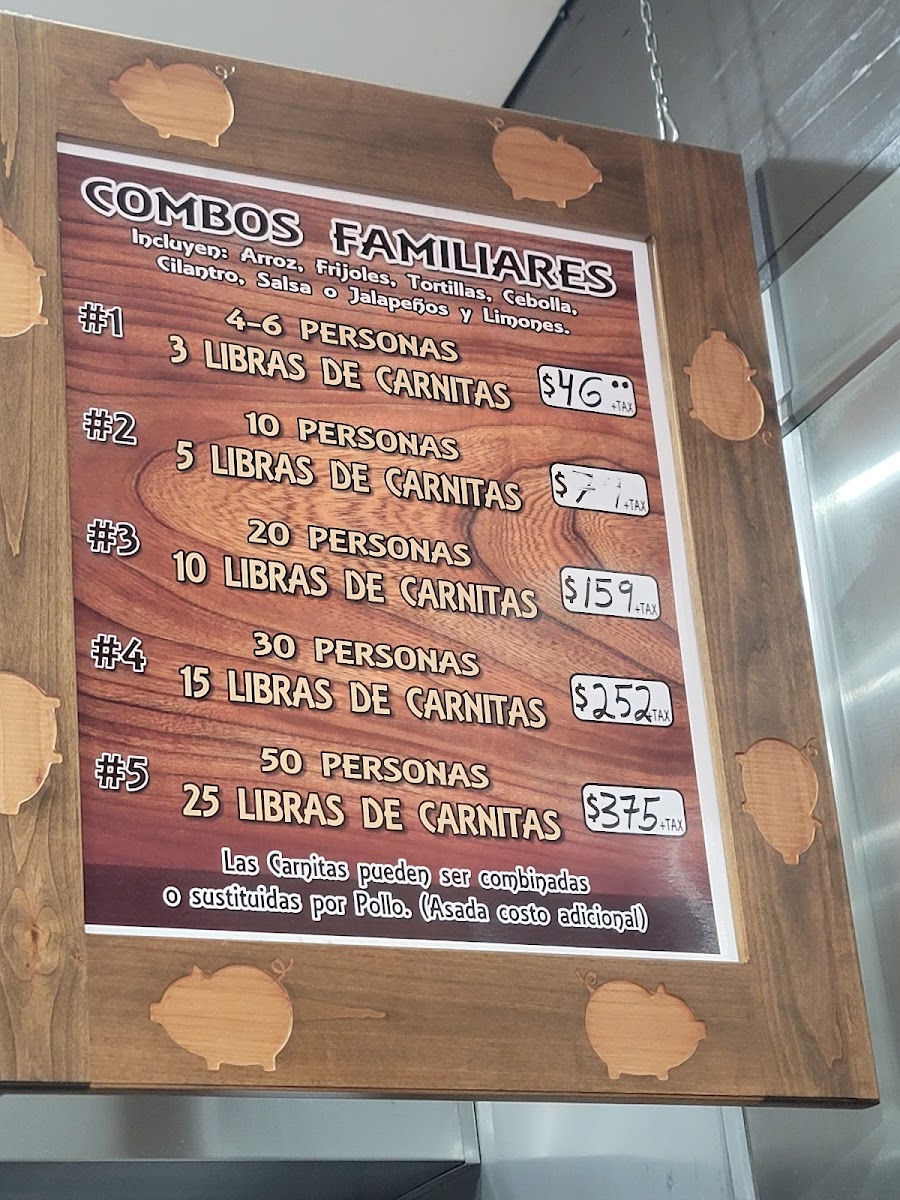 COMBOS FAMILIARES
Incluyen: Arroz, Frijoles, Tortillas, Cebolla,
Cilantro, Salsa o Jalapeños y Limones.
#1 4-6 PERSONAS
3 LIBRAS DE CARNITAS $46.. +TAX
#2 10 PERSONAS
5 LIBRAS DE CARNITAS +TAX
#3 20 PERSONAS
10 LIBRAS DE CARNITAS $159 +TAX
#4 30 PERSONAS
15 LIBRAS DE CARNITAS $252 +TAX
#5 50 PERSONAS
25 LIBRAS DE CARNITAS $375 +TAX
Las Carnitas pueden ser combinadas
o sustituidas por Pollo. (Asada costo adicional)